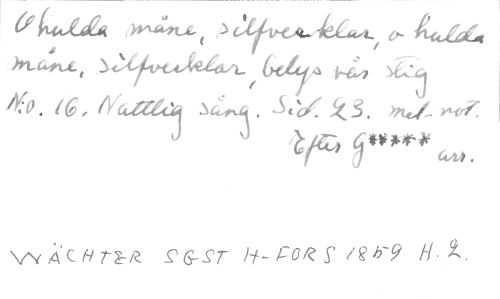 O hulda måne, silfverklar, o hulda
måne, silfverklar, belys vår stig
N:o. 16. Nattlig sång. Sid. 23. mel. not.
Efter G***** arr.
WÄCHTER SGST H-FORS 1859 H. 2.